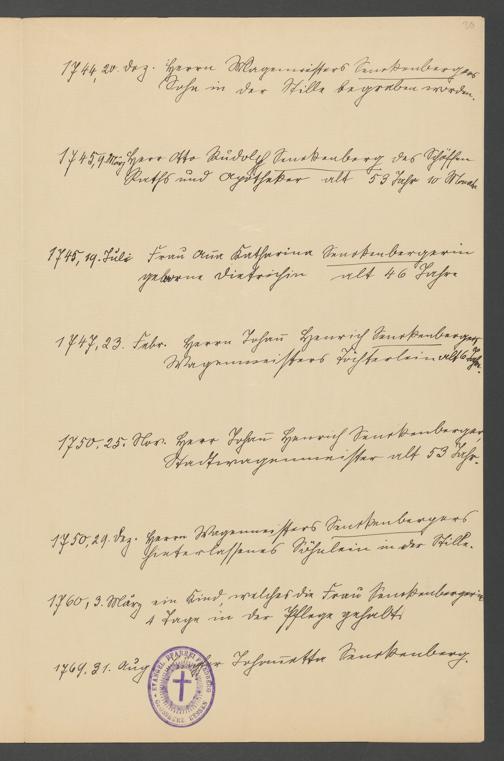 1744, 20. Dez. Herrn Wagenmeisters Senckenbergers
Sohn in der Stille begraben worden.
1745, 9. März Herr Otto Rudolph Senckenberg des Schöffen
Raths und Apotheker alt 53 Jahr 10 Monate
1745, 19. Juli Frau Anna Katharina Senckenbergerin
geborne Dietrichin alt 46 Jahre
1747, 23. Febr. Herrn Johann Henrich Senckenbergers
Wagenmeisters Töchterlein alt 6 Jahr.
1750. 25. Nov. Herr Johann Henrich Senckenberger,
Stadtwagenmeister alt 53 Jahr.
1750, 29. Dez. Herrn Wagenmeisters Senckenbergers
hinterlassenes Söhnlein in der Stille.
1760, 3. März ein Kind, welches die Frau Senckenbergerin
4 Tage in der Pflege gehabt
1769. 31. Aug Johannetta Senckenberg.